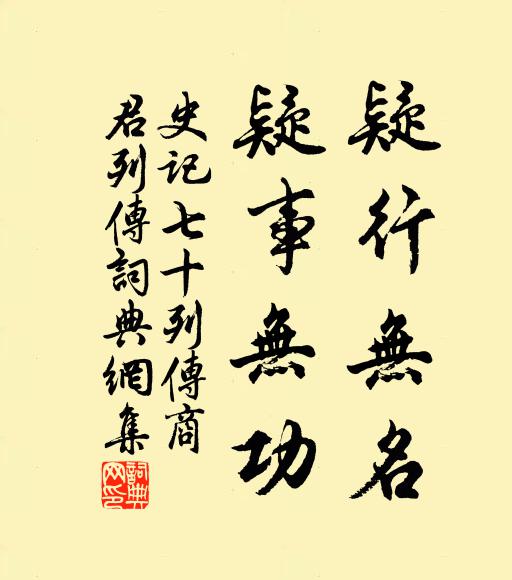 疑行無名
疑事無功
史記七十列傳商
君列傳詞典網集
詞典網印